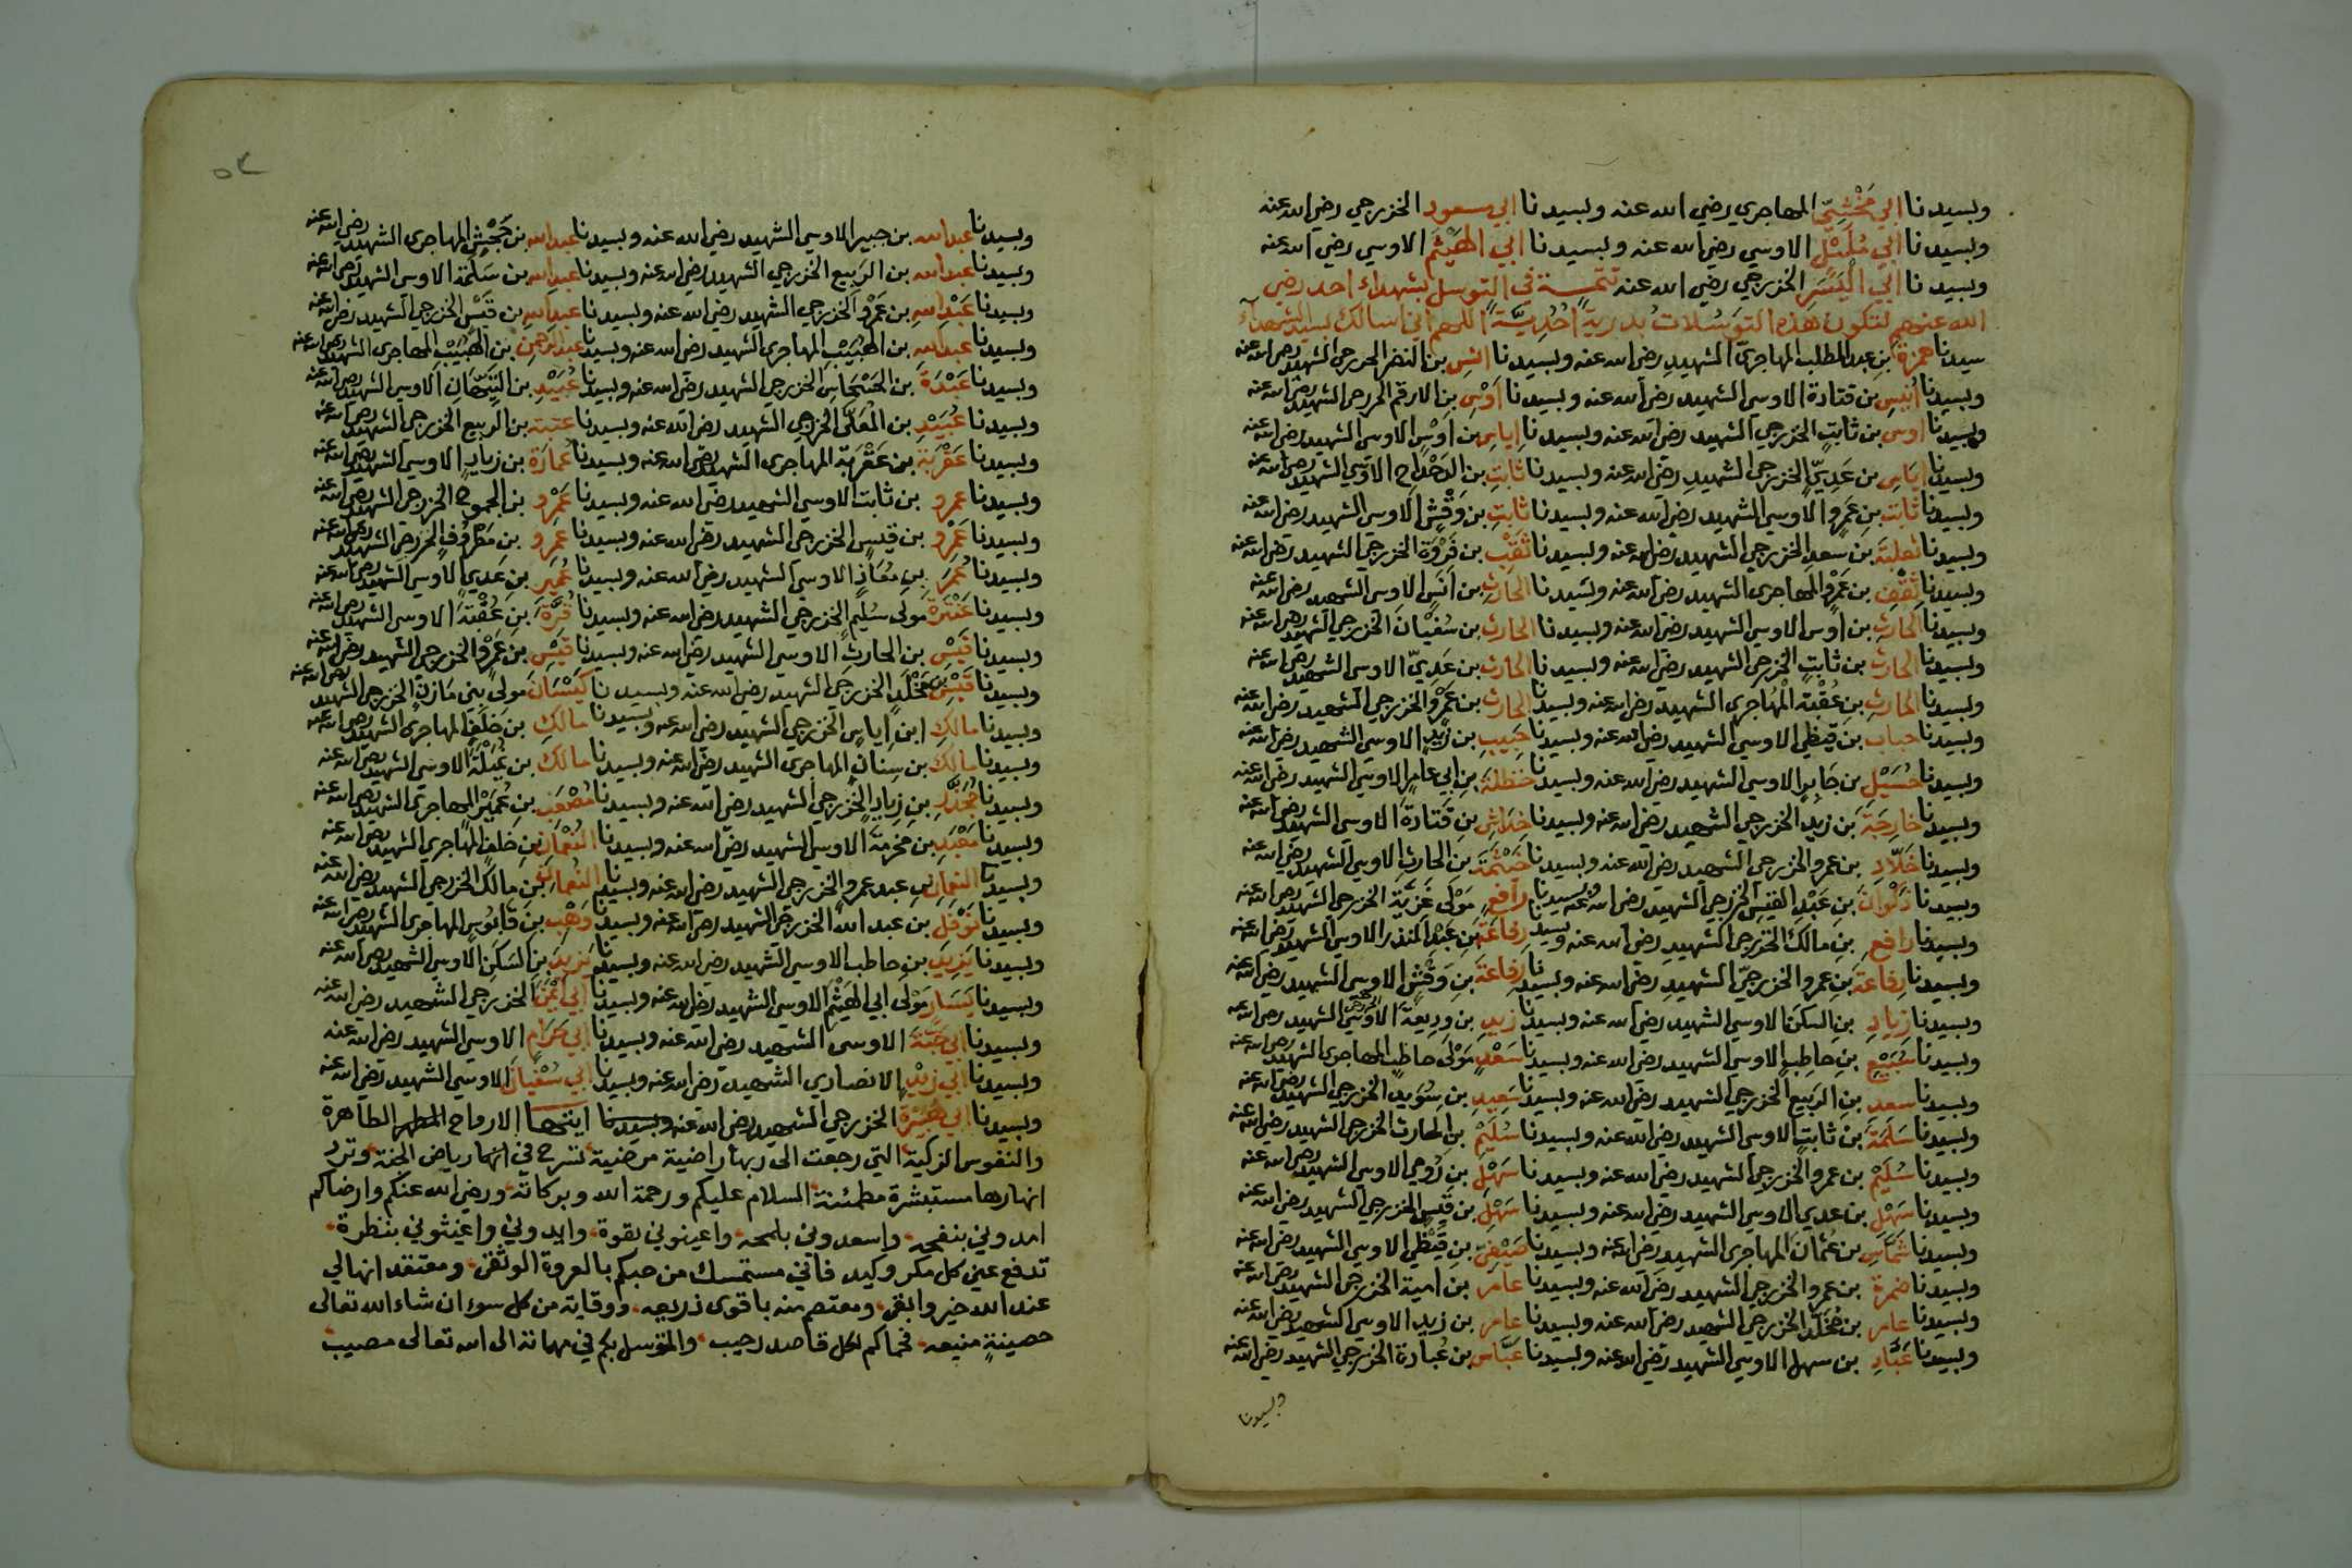 وبسيدنا ابي مَخْشِيّ المهاجري رضي الله عنه وبسيدنا ابي سعود الخزرجي رضي الله عنه
وبسيدنا ابي مُلَيْل الاوسي رضي الله عنه وبسيدنا ابي الهَيْثَم الاوسي رضي الله عنه
وبسيدنا ابي اليَسَر الخزرجي رضي الله عنه تتمـــة في التوسل بشهداء احد رضي
الله عنهم لتكون هذه التوسُلات بدريةً اُحُدِيَّةً اللهم اني اسالك بسيد الشهدآء
سيدنا حمزة بن عبد المطلب المهاجري الشهيد رضي الله عنه وبسيدنا انس بن النضر الخزرجي الشهيد رضي الله عنه
وبسيدنا اُنَيسِ بن قتادة الاوسي الشهيد رضي الله عنه وبسيدنا اَوْسِ بن الارقم الخزرجي الشهيد رضي الله عنه
وبسيدنا اوس بن ثابت الخزرجي الشهيد رضي الله عنه وبسيدنا اِياسِ بن اوْس الاوسي الشهيد رضي الله عنه
وبسيدنا اِيَاسِ بن عَدِيّ الخزرجي الشهيد رضي الله عنه وبسيدنا ثابتِ بن الدَحْدَاح الاوسي الشهيد رضي الله عنه
وبسيدنا ثابت بن عَمرو الاوسي الشهيد رضي الله عنه وبسيدنا ثابتِ بن وَقْشٍ الاوسي الشهيد رضي الله عنه
وبسيدنا ثعلبَةَ بن سعد الخزرجي الشهيد رضي الله عنه وبسيدنا ثَقْبِ بن فَرْوَة الخزرجي الشهيد رضي الله عنه
وبسيدنا ثَقْفِ بن عَمْرٍو المهاجري الشهيد رضي الله عنه وبسيدنا الحارِثِ بن اَنَسٍ الاوسي الشهيد رضي الله عنه
وبسيدنا الحارثِ بن اوس الاوسي الشهيد رضي الله عنه وبسيدنا الحارثِ بن سُفْيَانَ الخزرجي الشهيد رضي الله عنه
وبسيدنا الحارثِ بن ثابتٍ الخزرجي الشهيد رضي الله عنه وبسيدنا الحارث بن عَدِيّ الاوسي الشهيد رضي الله عنه
وبسيدنا الحارثِ بن عُقْبة المُهاجري الشهيد رضي الله عنه وبسيدنا الحارث بن عَمْرو الخزرجي الشهيد رضي الله عنه
وبسيدنا حباب بن قيظي الاوسي الشهيد رضي الله عنه وبسيدنا حَبِيبِ بن زَيدٍ الاوسي الشهيد رضي الله عنه
وبسيدنا حُسَيْلِ بن جَابرٍ الاوسي الشهيد رضي الله عنه وبسيدنا حَنظلةَ بن ابي عامرٍ الاوسي الشهيد رضي الله عنه
وبسيدنا خارِجَةَ بن زيدٍ الخزرجي الشهيد رضي الله عنه وبسيدنا خِدَاشِ بن قَتَادةَ الاوسي الشهيد رضي الله عنه
وبسيدنا خَلّادِ بن عمرو الخزرجي الشهيد رضي الله عنه وبسيدنا خَيْثَمَةَ بن الحارث الاوسي الشهيد رضي الله عنه
وبسيدنا ذَكْوَانَ بن عَبْدِ القيس الخزرجي الشهيد رضي الله عنه وبسيدنا رافعٍ مَوْلَى غَزِيَّة الخزرجي الشهيد رضي الله عنه
وبسيدنا رافع بن مالك الخزرجي الشهيد رضي الله عنه وبسيدنا رِفاعَةَ بن عَبْدِ المنذر الاوسي الشهيد رضي الله عنه
وبسيدنا رِفاعَةَ بن عمرو الخزرجيّ الشهيد رضي الله عنه وبسيدنا رِفاعَةَ بن وَقْش الاوسي الشهيد رضي الله عنه
وبسيدنا زيادِ بن السكن الاوسي الشهيد رضي الله عنه وبسيدنا زيدِ بن وديعَةَ الاوسي الشهيد رضي الله عنه
وبسيدنا سُبَيْعِ بن حاطِبٍ الاوسي الشهيد رضي الله عنه وبسيدنا سَعْدٍ مَوْلَى حاطبٍ المهاجري الشهيد رضي الله عنه
وبسيدنا سعد بن الربيع الخزرجي الشهيد رضي الله عنه وبسيدنا سَعِيدِ بن سُوَيدٍ الخزرجي الشهيد رضي الله عنه
وبسيدنا سَلَمَةَ بن ثابتٍ الاوسي الشهيد رضي الله عنه وبسيدنا سُلَيْمِ بن الحارث الخزرجي الشهيد رضي الله عنه
وبسيدنا سُلَيْمِ بن عمرو الخزرجي الشهيد رضي الله عنه وبسيدنا سَهْلِ بن رُومي الاوسي الشهيد رضي الله عنه
وبسيدنا سَهْلِ بن عدي الاوسي الشهيد رضي الله عنه وبسيدنا سَهْلِ بن قَيسٍ الخزرجي الشهيد رضي الله عنه
وبسيدنا شَمَّاسِ بن عُثمانَ المهاجري الشهيد رضي الله عنه وبسيدنا صَيْفِيّ بن قَيْظي الاوسي الشهيد رضي الله عنه
وبسيدنا ضمرة بن عمرو الخزرجي الشهيد رضي الله عنه وبسيدنا عامر بن امية الخزرجي الشهيد رضي الله عنه
وبسيدنا عامر بن مُخَلَّد الخزرجي الشهيد رضي الله عنه وبسيدنا عامر بن زيد الاوسي الشهيد رضي الله عنه
وبسيدنا عَبَّادِ بن سهل الاوسي الشهيد رضي الله عنه وبسيدنا عَبَّاسِ بن عُبادة الخزرجي الشهيد رضي الله عنه
وبسيدنا
وبسيدنا عبد الله بن جبير الاوسي الشهيد رضي الله عنه وبسيدنا عبد الله بن جَحْشٍ المهاجري الشهيد رضي الله عنه
وبسيدنا عبد الله بن الربيع الخزرجي الشهيد رضي الله عنه وبسيدنا عبد الله بن سَلَمَة الاوسي الشهيد رضي الله عنه
وبسيدنا عَبْدِ اللهِ بن عَمْرٍو الخزرجي الشهيد رضي الله عنه وبسيدنا عبد اللهِ بن قَيْس الخزرجي الشهيد رضي الله عنه
وبسيدنا عبد الله بن الهُبَيْبِ المهاجري الشهيد رضي الله عنه وبسيدنا عبد الرَحْمنِ بن الهُبَيْبِ المهاجري الشهيد رضي الله عنه
وبسيدنا عَبْدَةَ بن الحَسْحَاسِ الخزرجي الشهيد رضي الله عنه وبسيدنا عُبَيْدِ بن التَيّهَانِ الاوسي الشهيد رضي الله عنه
وبسيدنا عُبَيْدِ بن المُعَلَّى الخزرجي الشهيد رضي الله عنه وبسيدنا عتبة بن الربيع الخزرجي الشهيد رضي الله عنه
وبسيدنا عَقْرَبَةَ بن عَقْرَبَة المهاجري الشهيد رضي الله عنه وبسيدنا عُمارَة بن زيادٍ الاوسي الشهيد رضي الله عنه
وبسيدنا عمرو بن ثابت الاوسي الشهيد رضي الله عنه وبسيدنا عَمْرِو بن الجموح الخزرجي الشهيد رضي الله عنه
وبسيدنا عَمْرِو بن قيس الخزرجي الشهيد رضي الله عنه وبسيدنا عَمْرِو بن مَطْرُوفٍ الخزرجي الشهيد رضي الله عنه
وبسيدنا عُمَرَ بن مُعَاذٍ الاوسي الشهيد رضي الله عنه وبسيدنا عُمَيرِ بن عَدِيٍ الاوسي الشهيد رضي الله عنه
وبسيدنا عَنْتَرَةَ مولى سُلَيم الخزرجي الشهيد رضي الله عنه وبسيدنا قُرَّةَ بن عُقْبَةَ الاوسي الشهيد رضي الله عنه
وبسيدنا قَيْسِ بن الحارثِ الاوسي الشهيد رضي الله عنه وبسيدنا قَيْسِ بن عَمْرٍو الخزرجي الشهيد رضي الله عنه
وبسيدنا قَيْسِ بن مُخَلَّدٍ الخزرجي الشهيد رضي الله عنه وبسيدنا كَيْسَانَ مولى بَني مَازنٍ الخزرجي الشهيد رضي الله عنه
وبسيدنا مالكِ ابن اِياسٍ الخزرجي الشهيد رضي الله عنه وبسيدنا مالكِ بن خَلَفٍ المهاجري الشهيد رضي الله عنه
وبسيدنا مالكَ بن سِنانٍ المهاجري الشهيد رضي الله عنه وبسيدنا مالك بن نُمَيْلَةَ الاوسي الشهيد رضي الله عنه
وبسيدنا مُجَذَّرِ بن زِيادٍ الخزرجي الشهيد رضي الله عنه وبسيدنا مُصْعَبِ بن عُمَيْر المهاجري الشهيد رضي الله عنه
وبسيدنا مَعْبَدِ بن مَخرمَةَ الاوسي الشهيد رضي الله عنه وبسيدنا النُعْمانِ بن خلفٍ المهاجري الشهيد رضي الله عنه
وبسيدنا النعمان بن عبد عمرو الخزرجي الشهيد رضي الله عنه وبسيدنا النعمان بن مالك الخزرجي الشهيد رضي الله عنه
وبسيدنا نَوْفَلِ بن عبد الله الخزرجي الشهيد رضي الله عنه وبسيدنا وَهْبِ بن قابُوسٍ المهاجري الشهيد رضي الله عنه
وبسيدنا يَزِيدَ بن حاطب الاوسي الشهيد رضي الله عنه وبسيدنا يَزِيدَ بن السَكَنِ الاوسي الشهيد رضي الله عنه
وبسيدنا يَسَارٍ مَوْلَى ابي الهَيْثَمِ الاوسي الشهيد رضي الله عنه وبسيدنا ابي اَيْمَنَ الخزرجي الشهيد رضي الله عنه
وبسيدنا ابي حَبَّةَ الاوسي الشهيد رضي الله عنه وبسيدنا ابي حَرَامٍ الاوسي الشهيد رضي الله عنه
وبسيدنا ابي زيْدٍ الانصاري الشهيد رضي الله عنه وبسيدنا ابي سُفْيَانَ الاوسي الشهيد رضي الله عنه
وبسيدنا ابي هُبَيْرَةَ الخزرجي الشهيد رضي الله عنه وبسيدنا ايتها الارواح المطهر الطاهرة
والنفوس الزكية التي رجعت الى ربها راضية مرضية تسرح في انهار رياض الجنة وترد
انهارها مستبشرة مطمئنة السلام عليكم ورحمة الله وبركاته ورضي الله عنكم وارضاكم
امدوني بنفحه واسعدوني بلمحه واعينوني بقوة وايدوني واغيثوني بنظرة
تدفع عني كل مكر وكيد فاني مستمسك من حبكم بالعروة الوثقى ومعتقد انها لي
عند الله خير وابقى ومعتصم منه باقوى ذريعه ووقاية من كل سوء ان شاء الله تعالى
حصينةٍ منيعه فحماكم لكل قاصد رحيب والمتوسل بكم في مهماته الى الله تعالى مصيب